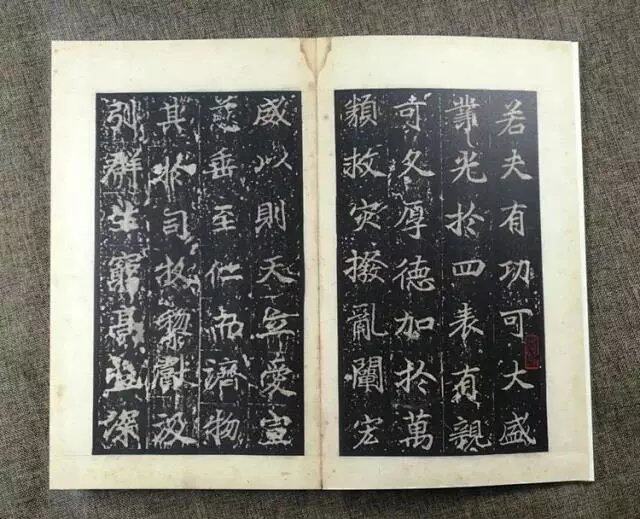 若夫有功可大盛
業光於四表有親
可久厚德加於萬
類救灾撥亂闡宏
威以則天愛宣
慈垂至仁而濟物
其於司牧黎獻汲
引群生窮高深